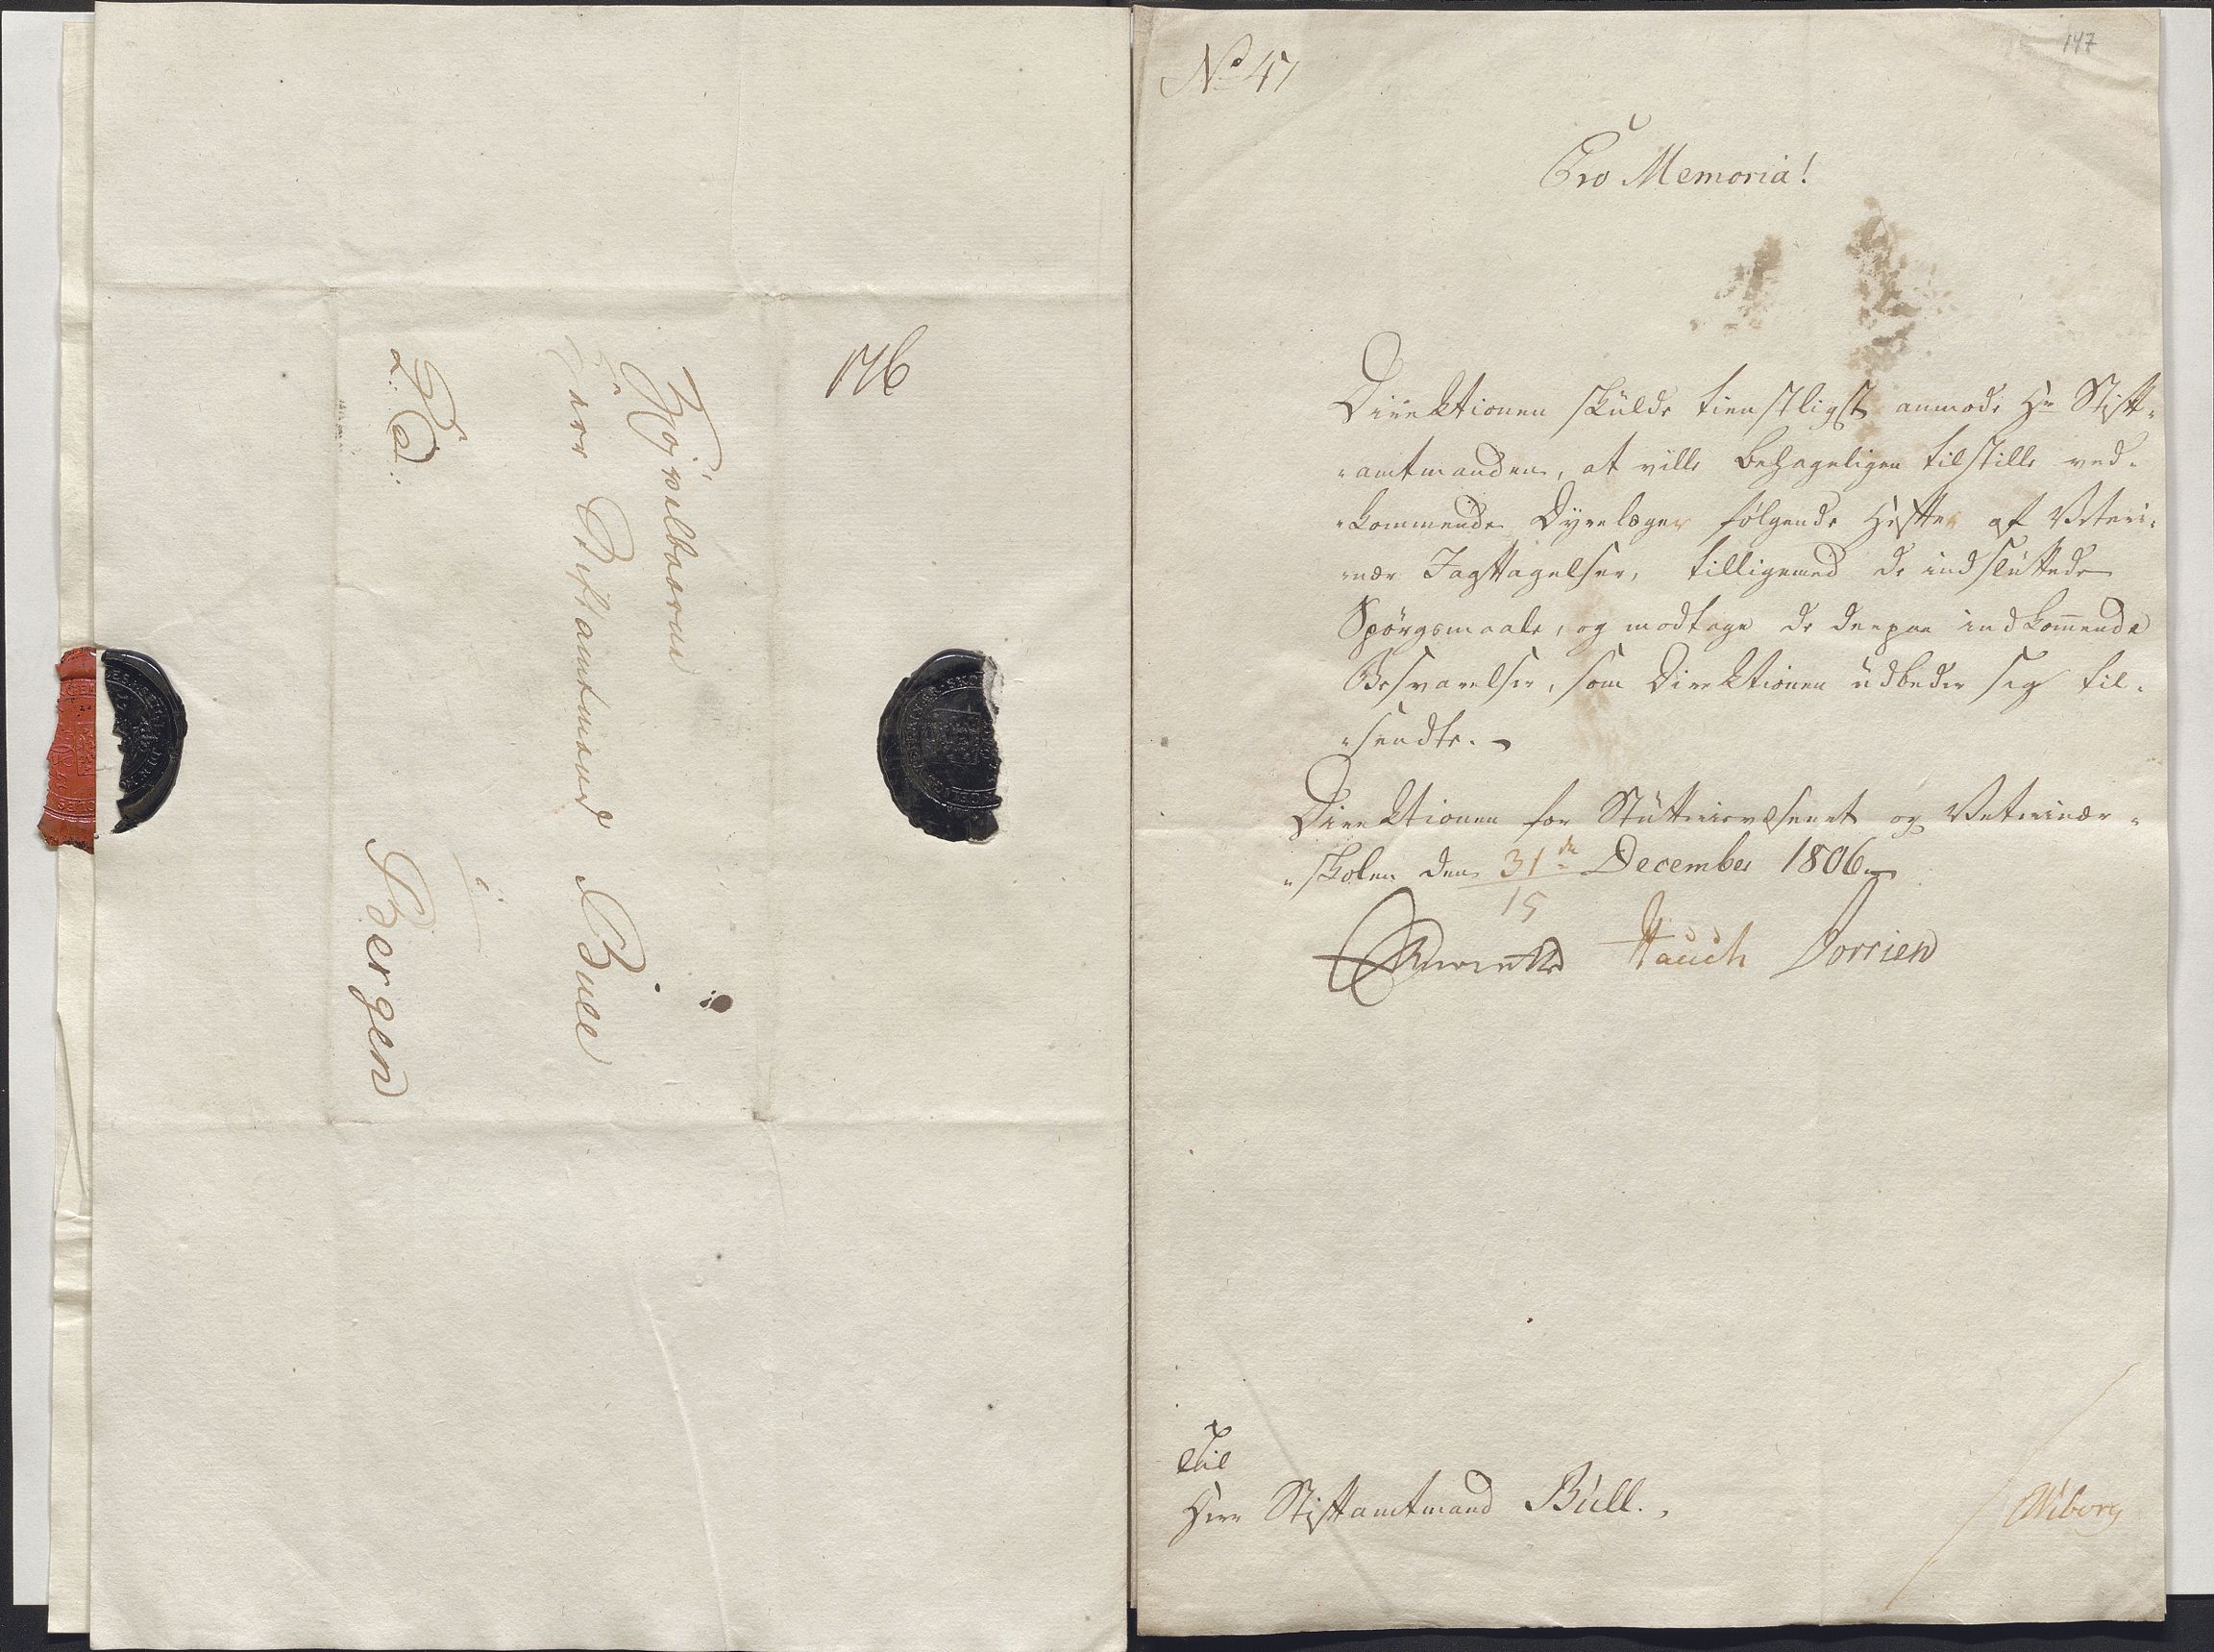 176
Højvelbaarne
Herr Stiftamtmand Bull
i
Bergen
No 47
147
Pro Memoria!
Direktionen skulde tienstligst anmode Hr Stift-
-amtmanden, at ville behageligen tilstille ved-
-kommende Dyrelæger følgende Hefter af Veteri-
-nær Jagttagelser, tilligemed de indsluttede
Spörgsmaale, og modtage de derpaa indkommende
Besvarelser, som Direktionen udbeder sig til-
-sendte.
Direktionen for Stutterievæsenet og Veterinær-
-skolen den 31de December 1806
15
Hauch Dorrien
Til
Herr Stiftamtmand Bull.
Wiborg